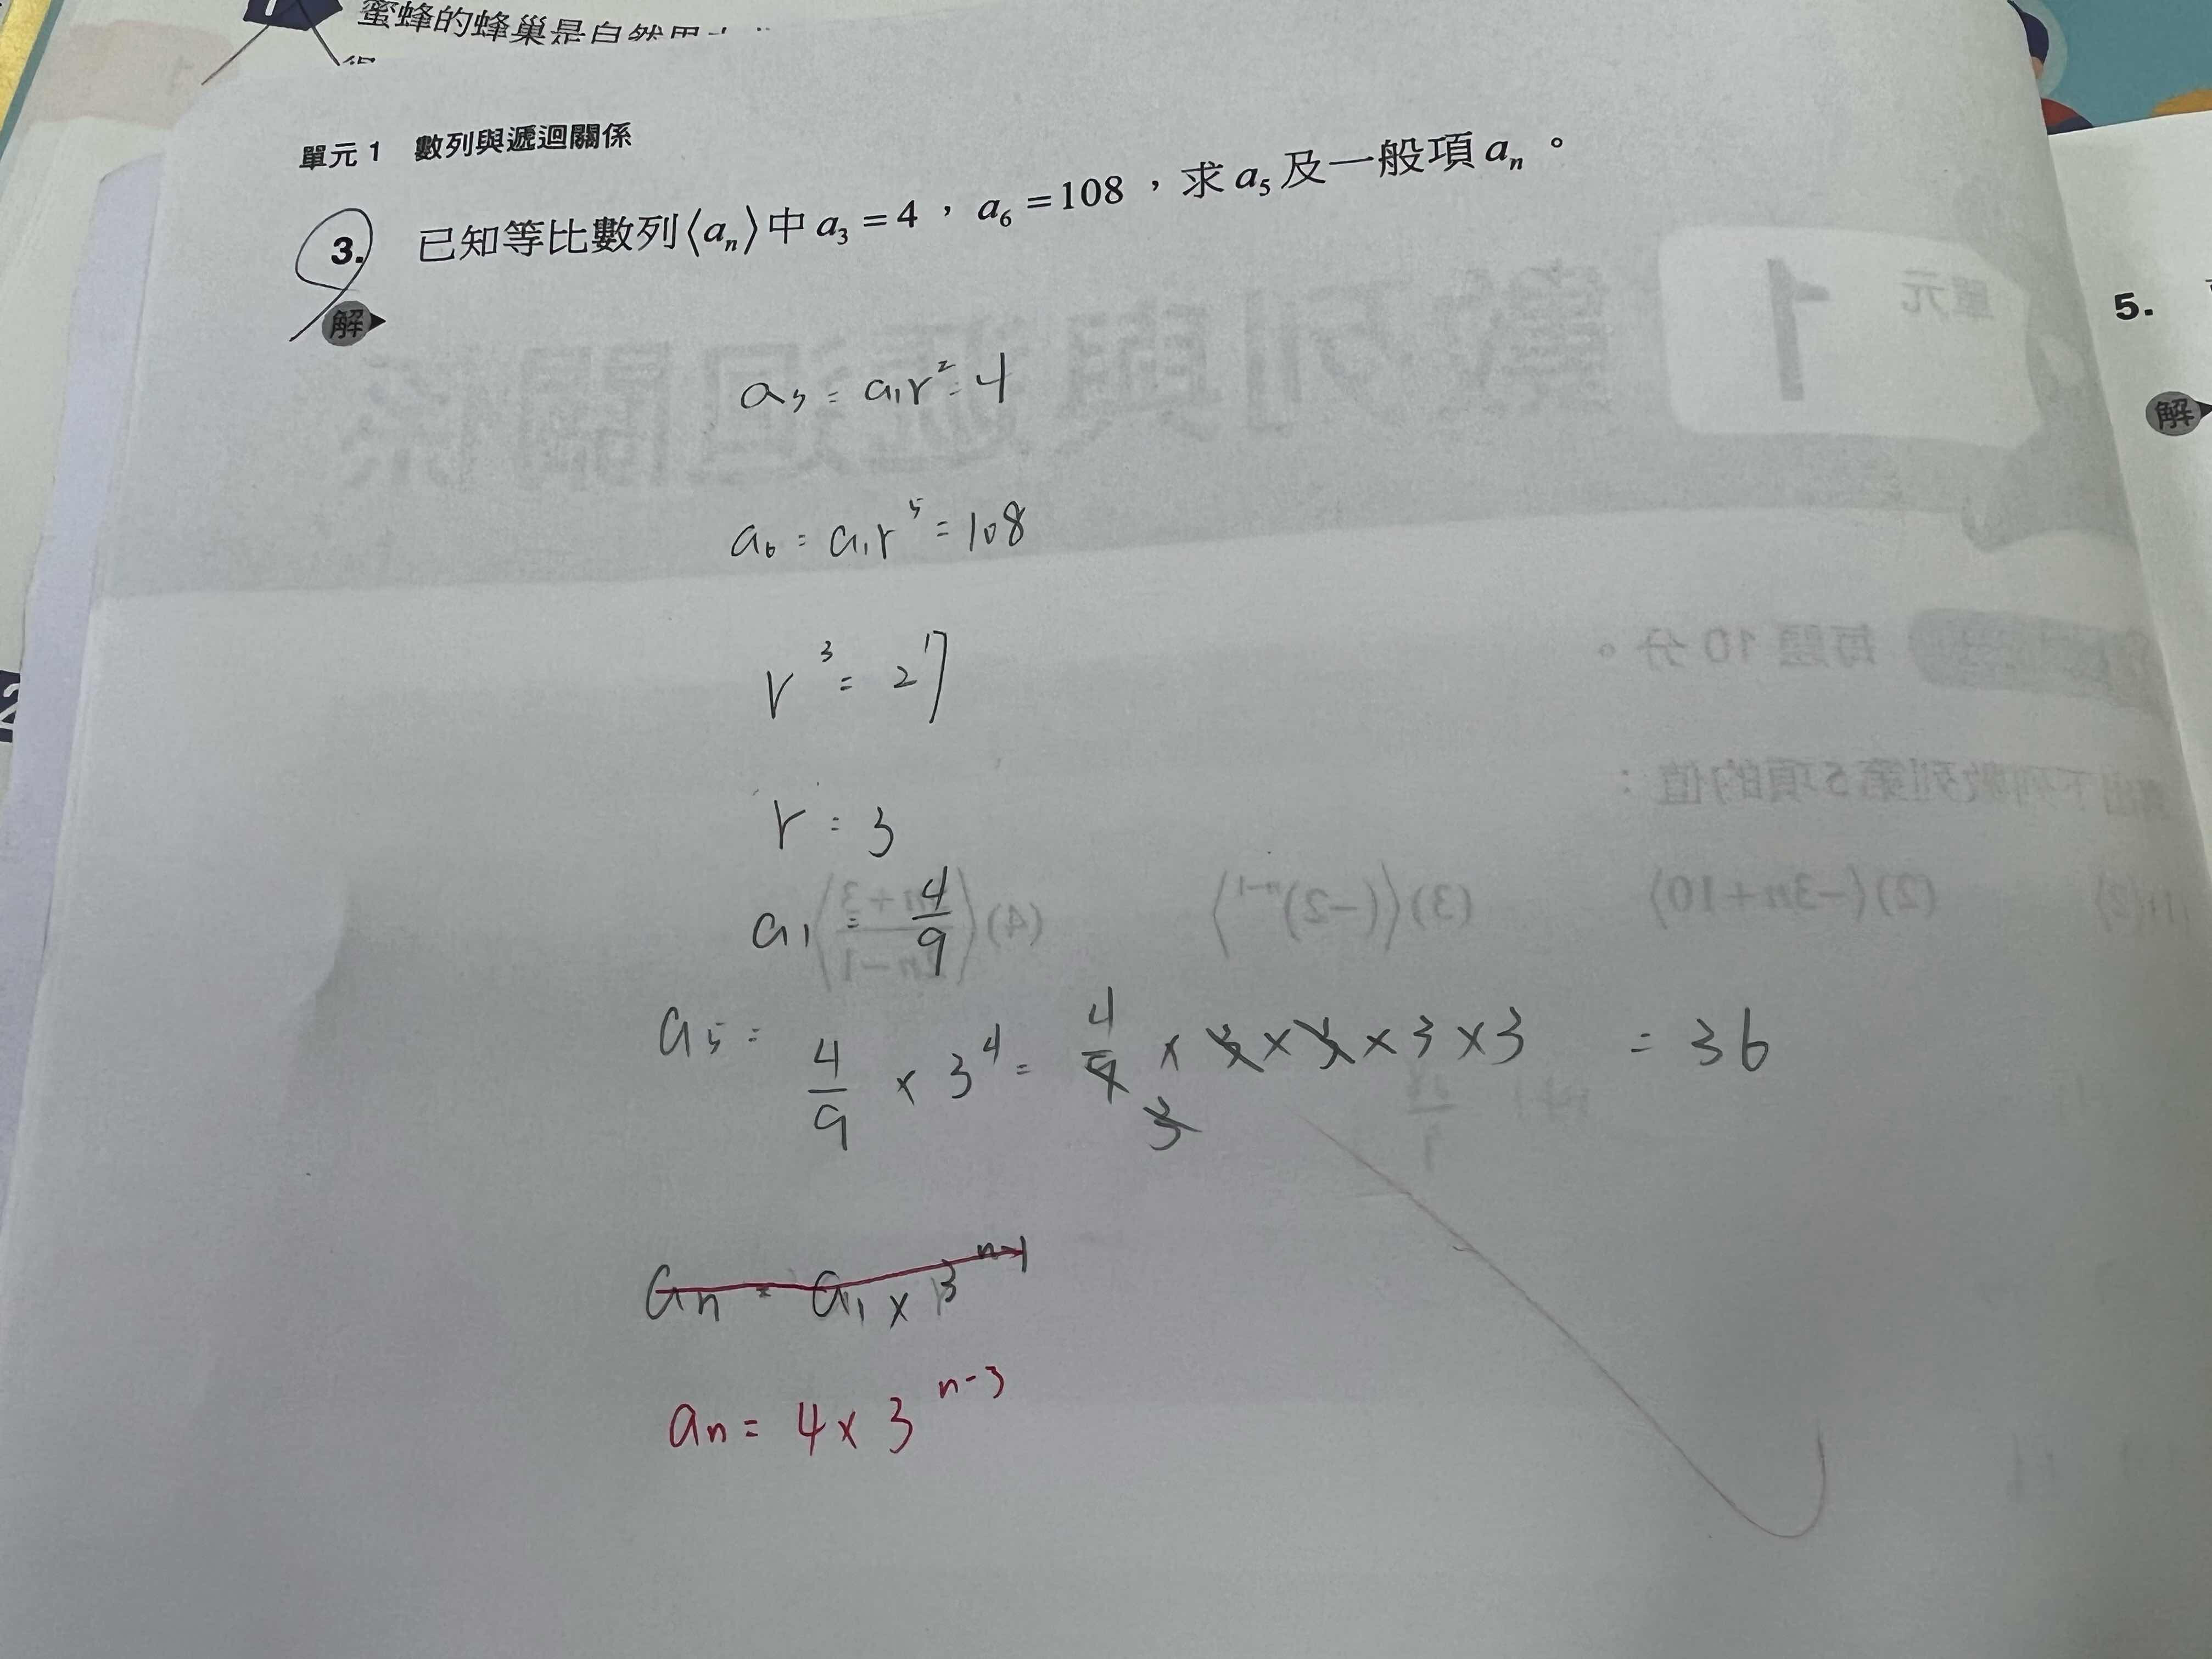 蜜蜂的蜂巢是自然界
單元 1 數列與遞迴關係
3. 已知等比數列⟨aₙ⟩中 a₃ = 4，a₆ = 108，求 a₅ 及一般項 aₙ。
解
a₃ = a₁r² = 4
a₆ = a₁r⁵ = 108
r³ = 27
r = 3
a₁ = 4/9
a₅ = 4/9 × 3⁴ = 4/9 × 3 × 3 × 3 × 3 = 36
3
aₙ = a₁ × 3ⁿ⁻¹
aₙ = 4 × 3ⁿ⁻³
5.
解
2